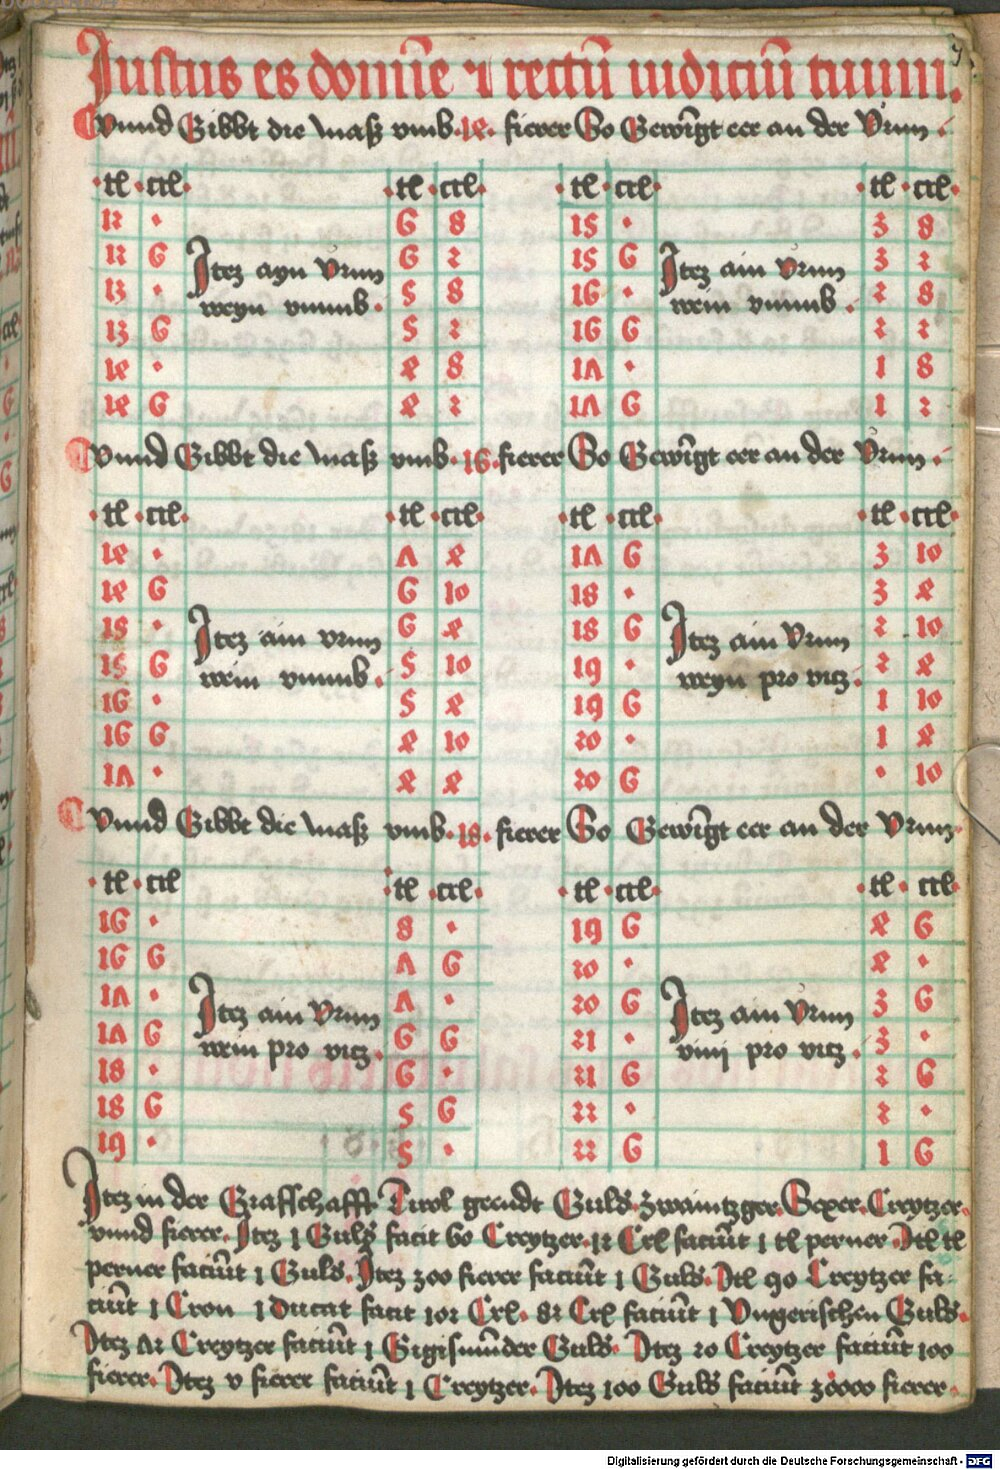 Justus es domīe ⁊ rectū iudiciū tuum.
Vnnd Gibbt die Masz vmb · 14 · fierer So Gewingt eer an der Vrnn ·
· tl · crl · · tl · crl · · tl · crl · · tl · crl ·
12 · 6 8 15 · 3 8
12 6 Jtez ayn Vrnn 6 2 15 6 Jtez ain Vrnn 3 2
13 · weyn vmmb · 5 8 16 · wein vmmb · 2 8
13 6 5 2 16 6 2 2
14 · 4 8 17 · 1 8
14 6 4 2 17 6 1 2
Vnnd Gibbt die Masz vmb · 16 · fierer So Gewingt eer an der Vrnn ·
· tl · crl · · tl · crl · · tl · crl · · tl · crl ·
14 · 7 4 17 6 3 10
14 6 6 10 18 · 3 4
15 · Jtez ain vrnn 6 4 18 6 Jtez ain Vrnn 2 10
15 6 wein vmmb · 5 10 19 · weyn pro vicz · 2 4
16 · 5 4 19 6 1 10
16 6 4 10 20 · 1 4
17 · 4 4 20 6 · 10
Vnnd Gibbt die Masz vmb · 18 · fierer So Gewingt eer an der Vrnn ·
· tl · crl · tl · crl · · tl · crl · · tl · crl ·
16 · 8 · 19 6 4 6
16 6 7 6 20 · 4 ·
17 · Jtez ain Vrnn 7 · 20 6 Jtez ain Vrnn 3 6
17 6 wein pro vicz · 6 6 21 · vini pro vicz · 3 ·
18 · 6 · 21 6 2 6
18 6 5 6 22 · 2 ·
19 · 5 · 22 6 1 6
Jtez in der Graffschafft Tirol geendt Guld · Zwaintzger · Sexer · Creytzer ·
vnnd fierer · Jtez 1 Guld facit 60 Creytzer · 12 Crl faciūt 1 tl perner · Jtl tl
perner faciūt 1 Guld · Jtez 300 fierer faciūt 1 Guld · Jtl 90 Creytzer fa-
ciūt 1 Cron 1 Ducat facit 102 Crl · 82 Crl faciūt 1 Vngerischen Guld ·
Jtez 72 Creytzer faciūt 1 Sigismūder Guld · Jtez 20 Creytzer faciūt 100
fierer · Jtez v fierer faciūt 1 Creytzer · Jtez 100 Guld faciūt 30000 fierer ·
Digitalisierung gefördert durch die Deutsche Forschungsgemeinschaft - DFG